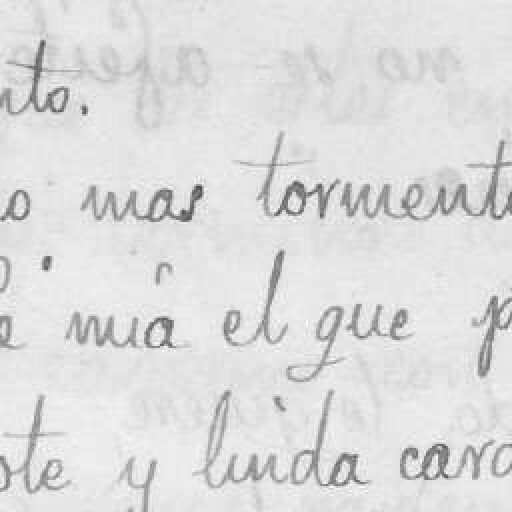 nto.
o mas tormento
mia el que p
ote y linda cara